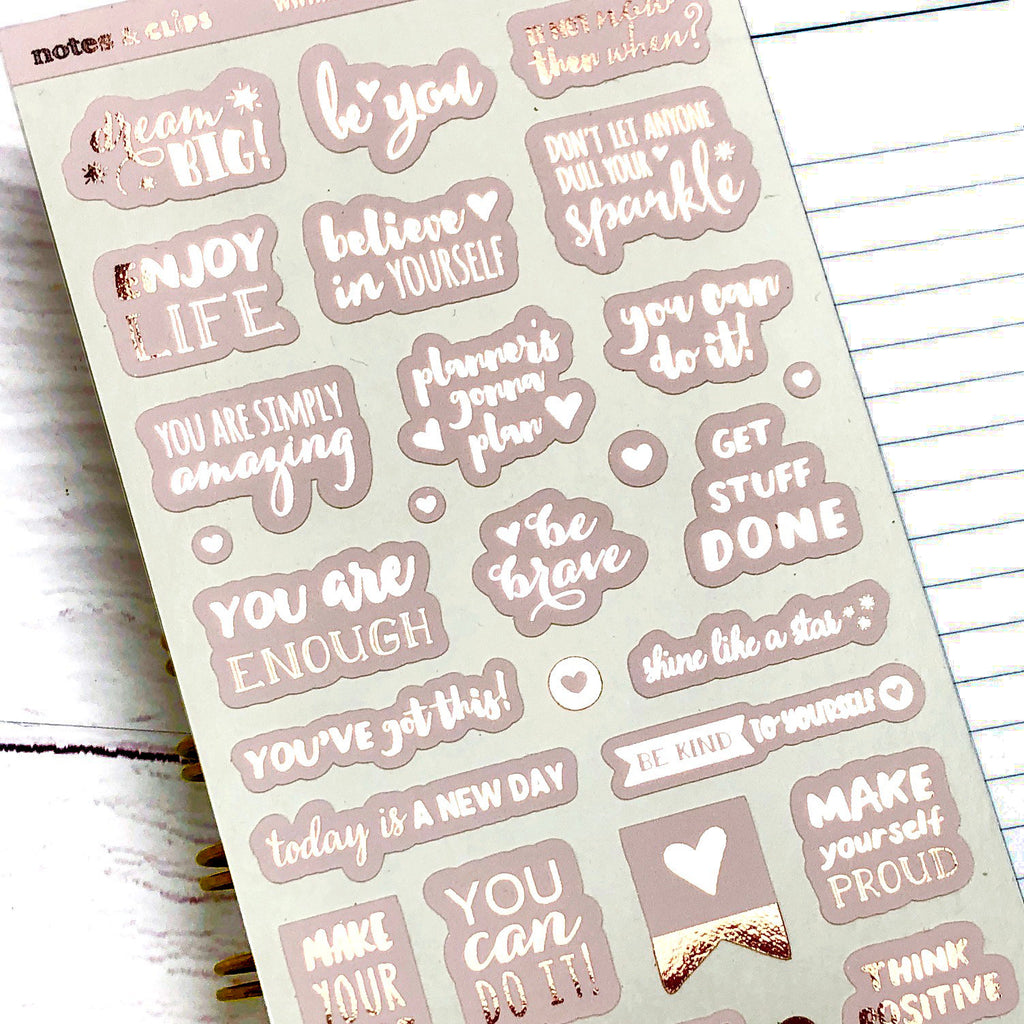 notes & CLIPS
be you
IF NOT now
then when?
dream
BIG!
DON'T LET ANYONE
DULL YOUR
sparkle
believe
in YOURSELF
ENJOY
LIFE
you can
do it!
planner's
gonna
plan
YOU ARE SIMPLY
amazing
GET
STUFF
DONE
be
brave
YOU are
ENOUGH
shine like a star
YOU'VE got this!
BE KIND TO YOURSELF
today is A NEW DAY
MAKE
yourself
PROUD
YOU
can
DO IT!
MAKE
YOUR
THINK
POSITIVE